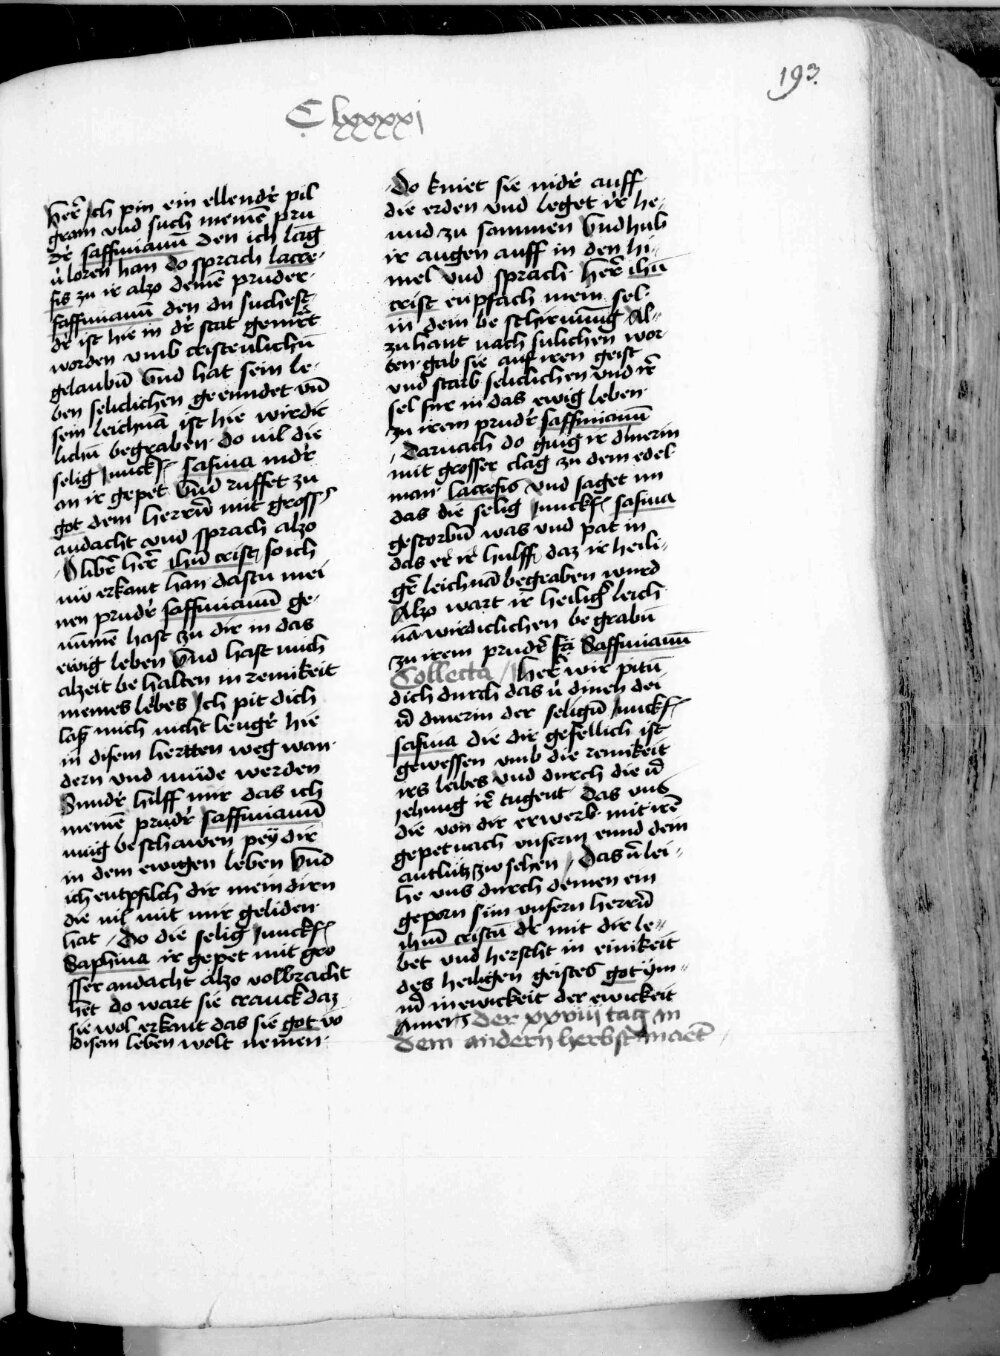 193.
Clxxxxj
her̄ Ich pin ein ellendr̄ pil
gram vnd such meinē pru
dr̄ saffinianū den ich lāg
v̄loren han do sprach lacre-
fis zu ir alzo deinē pruder-
saffinianū den du suchest
dr̄ ist hie in dr̄ stat gemr̄t
worden vmb cristenlichn̄
gelaubn̄ Vnd hat sein le-
ben seliclichen geenndet vn̄
sein leichnā ist hie wirdic
lichn̄ begraben· do vil die
selig Junckf- safina nidr̄
an ir gepet Vnd ruffet zu
got dem herrn̄ mit gross̄
andacht vnd sprach alzo
O libr̄ her̄ ihū crist, so ich
nw̄ erkant han dastu mei
nen prudr̄ saffinianū ge-
nūmē hast zu dir in das
ewig leben Vnd hast mich
alzeit be halten in reinikeit
meines lebes Ich pit dich
las mich nicht lengr̄ hie
in disem hertten weg wan-
dern vnd müde werden
Sundr̄ hilff mir das ich
meinē prudr̄ saffinianū
mug beschawen pey dir
in dem ewigen leben Vnd
ich entpfilch dir mein dirn
die vil mit mir geliden
hat / Do die selig Junckf-
Saphina ir gepet mit gro
sser andacht alzo volbracht
het do wart sie cranck daz
sie wol erkant das sie got vō
disem leben wolt nemen·
Do kniet sie nidr̄ auff
die erden vnd leget ir̄ he-
nnd zu sammen Vnd hub
ir augen auff in den hi-
mel Vnd sprach her̄ ihū
crist enpfach mein sel
in dein beschirmung Al-
zuhant nach sulichen wor
ten gab sie auf iren geist
vnd starb seliclichen vnd ir̄
sel fur in das ewig leben
zu irem prudr̄ saffinianū
Darnach do ging ir dinerin
mit grosser clag zu dem edel
man lacrefis vnd saget im
das die selig Junckf- safina
gestorbn̄ was vnd pat in
das er ir̄ hulff daz ir heili-
gr̄ leichnā begraben wurd
Alzo wart ir heiligr̄ leich
nā wirdiclichen begrabn̄
zu irem prudr̄ sā Saffinianū
Collecta / her̄ wir pitn̄
dich durch das v̄dinen dei
n̄ dinerin der selign̄ Junckf-
safina die dir gefellich ist
gewessen vmb die reinikeit
irs leibes vnd durch die v̄
jehung ir̄ tugent Das vns
die von dir erwerb mit irē
gepet nach vnserm ennd dein
antlütz zw sehen / Das v̄lei-
he vns durch deinen ein
geporn sun vnsern herrn̄
ihm̄ cristū dr̄ mit dir le-
bet vnd herscht in einikeit
des heiligen geistes got ym-
n̄ in ewickeit der ewickeit
Amen der xxviij tag in
dem andern herbstmaēt